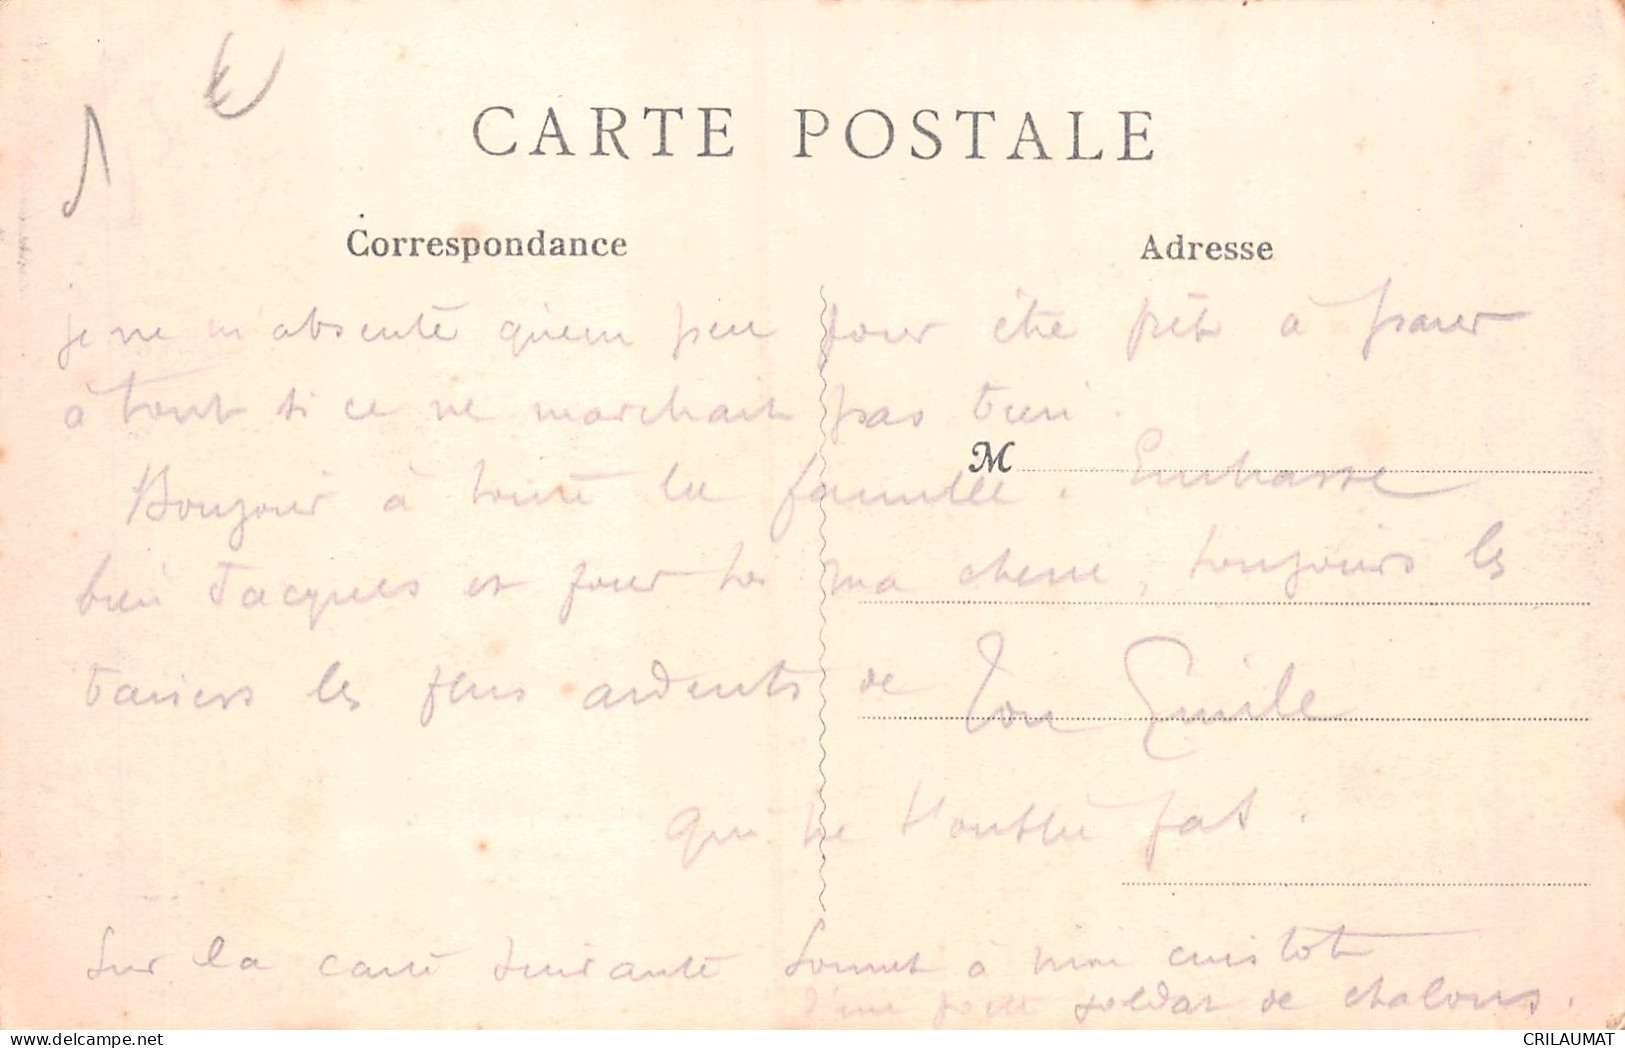 CARTE POSTALE
Correspondance
Adresse
je ne m'absente qu'un peu pour être prêt à parer
à tout si ce ne marchait pas bien.
M
Bonjour à toute la famille. Embrasse
bien Jacques et pour toi ma chérie, toujours les
baisers les plus ardents de Ton Emile
qui ne t'oublie pas.
Sur la carte suivante Sonnet à mon cuistot
d'un poète soldat de chalons.
CRILAUMAT